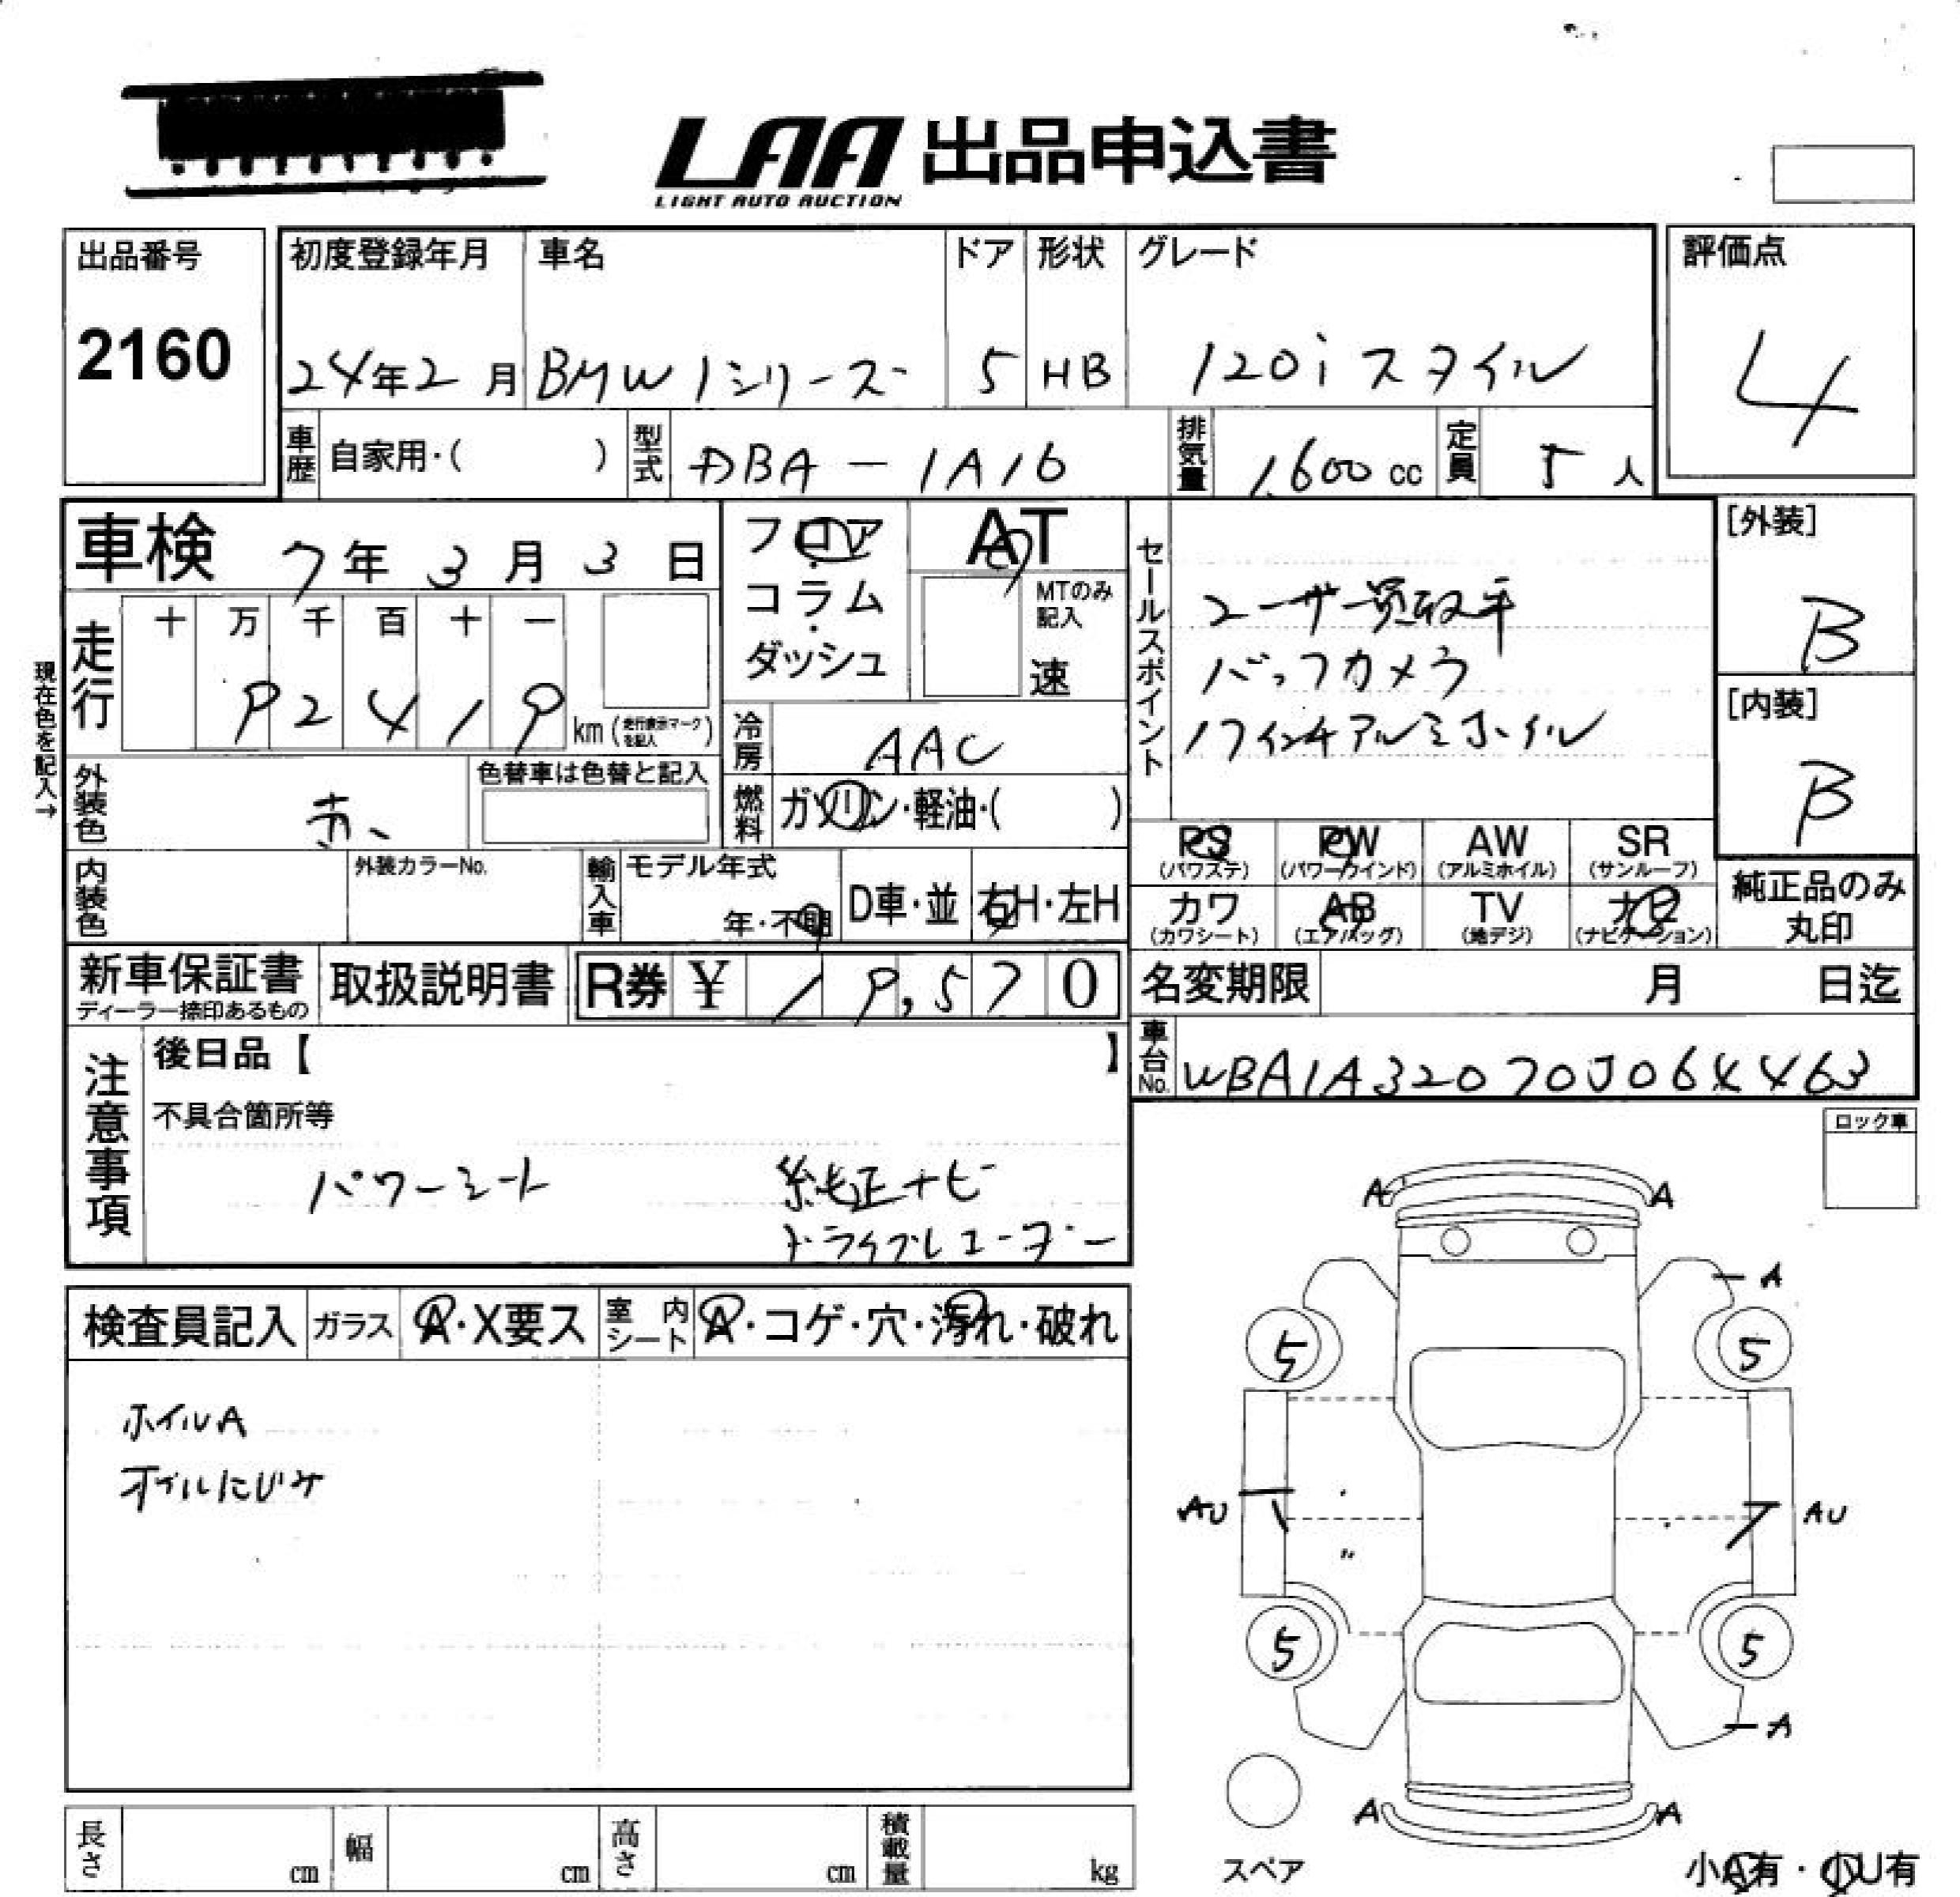 LAA 出品申込書
LIGHT AUTO AUCTION
出品番号
2160
初度登録年月 車名 ドア 形状 グレード
24年2月 BMW 1シリーズ 5 HB 120i スタイル
評価点
4
車歴 自家用・( ) 型式 DBA-1A16 排気量 1,600 cc 定員 5 人
車検 7年 3月 3日
フロア・コラム・ダッシュ
AT
MTのみ記入
速
セールスポイント
ユーザー買取車
バックカメラ
17インチアルミホイル
[外装]
B
[内装]
B
現在色を記入→
走行 十 万 千 百 十 一
92419 km (走行表示マークを記入)
冷房 AAC
外装色 赤
色替車は色替と記入
燃料 ガソリン・軽油・( )
PS (パワステ) PW (パワーウインド) AW (アルミホイル) SR (サンルーフ)
カワ (カワシート) AB (エアバッグ) TV (地デジ) ナビ (ナビゲーション)
純正品のみ丸印
内装色 外装カラーNo. 輸入車 モデル年式 年・不明 D車・並 右H・左H
新車保証書 ディーラー捺印あるもの 取扱説明書 R券 ¥ 19,570
名変期限 月 日迄
車台No. WBA1A32070J064463
注意事項
後日品【 】
不具合箇所等
パワーシート 純正ナビ
ドライブレコーダー
ロック車
検査員記入 ガラス A・X要ス 室内シート A・コゲ・穴・汚れ・破れ
ホイルA
オイルにじみ
A A
A
5 5
AU AU
5 5
A
A A
スペア
小A有・小U有
長さ cm 幅 cm 高さ cm 積載量 kg